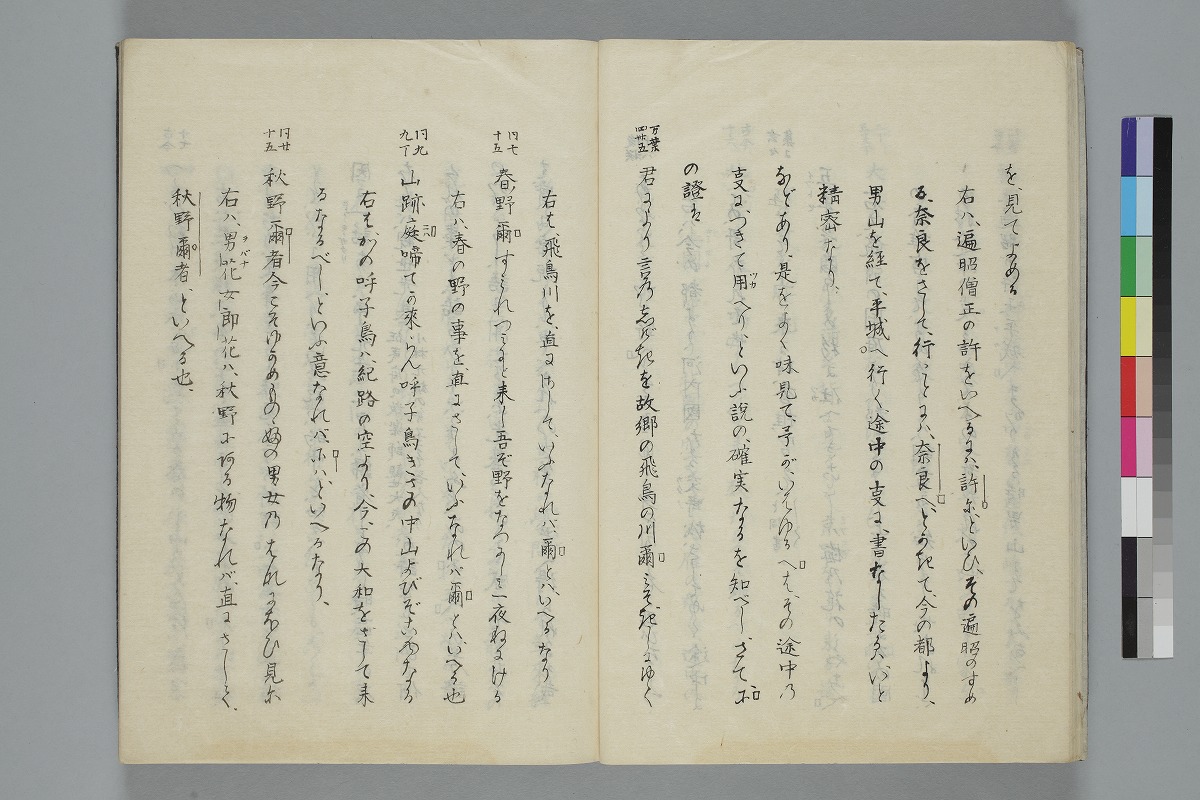 を、見てよめる
右ハ、遍昭僧正の許をいへるにハ、許に、といひ、その遍昭のすめ
る、奈良をさして、行、ことにハ、奈良へ、とかきて今の都より、
男山を経て、平城へ行く、途中の事に、書なしたるハ、いと
精密なり、
などあり、是をよく味見て、予が、いはゆる へハ、その途中の
事につきて用へり、といふ説の、確実なるを知べし、さてに
の證は
万葉
四廿五
君により言の繁きを故郷の飛鳥の川爾みそぎしにゆく
右は、飛鳥川を、直にさして、いふなれバ、爾とハいへるなり
同七
十五
春野爾すみれつミにと来し吾ぞ野をなつかしミ一夜ねにける
右ハ、春の野の事を、直にさして、いふなれバ爾とハいへる也
同九
九丁
山跡庭啼てか来らん呼子鳥きさの中山よびぞこゆなる
右は、かの呼子鳥ハ、紀路の空より、今、この大和をさして来
るなるべし、といふ意なれバ、にハ、といへるなり、
同廿
十五
秋野爾者今こそゆかめものゝふの男女乃はな
にほひ見に
右ハ、男花女郎花ハ、秋野にある物なれバ、直にさして、
ヲバナ
秋野爾者、といへる也、